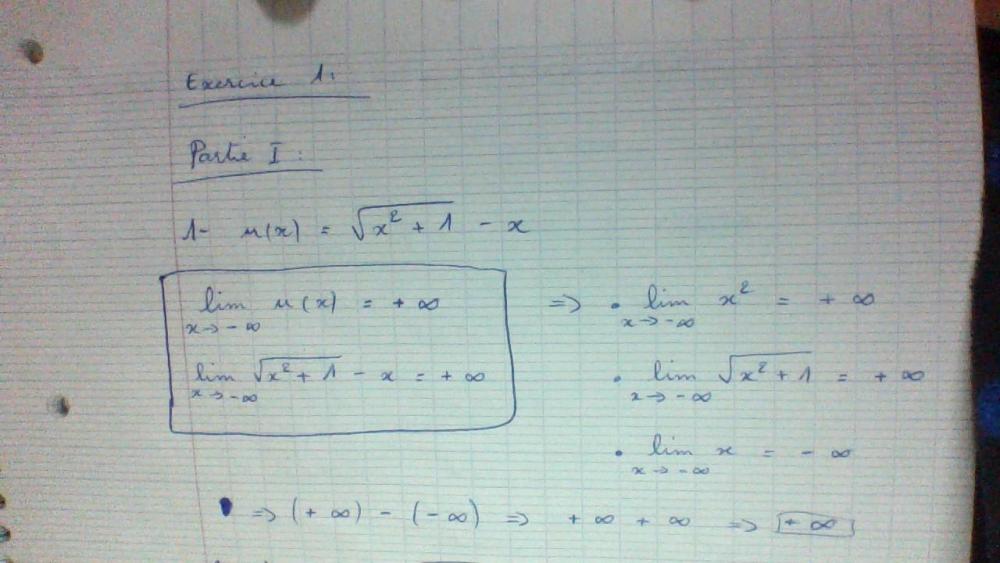 Exercice 1.
Partie I :
1- u(x) = √(x² + 1) - x
lim u(x) = + ∞ => • lim x² = + ∞
x→ - ∞ x→ - ∞
lim √(x² + 1) - x = + ∞ • lim √(x² + 1) = + ∞
x→ - ∞ x→ - ∞
• lim x = - ∞
x→ - ∞
=> (+ ∞) - (- ∞) => + ∞ + ∞ => + ∞